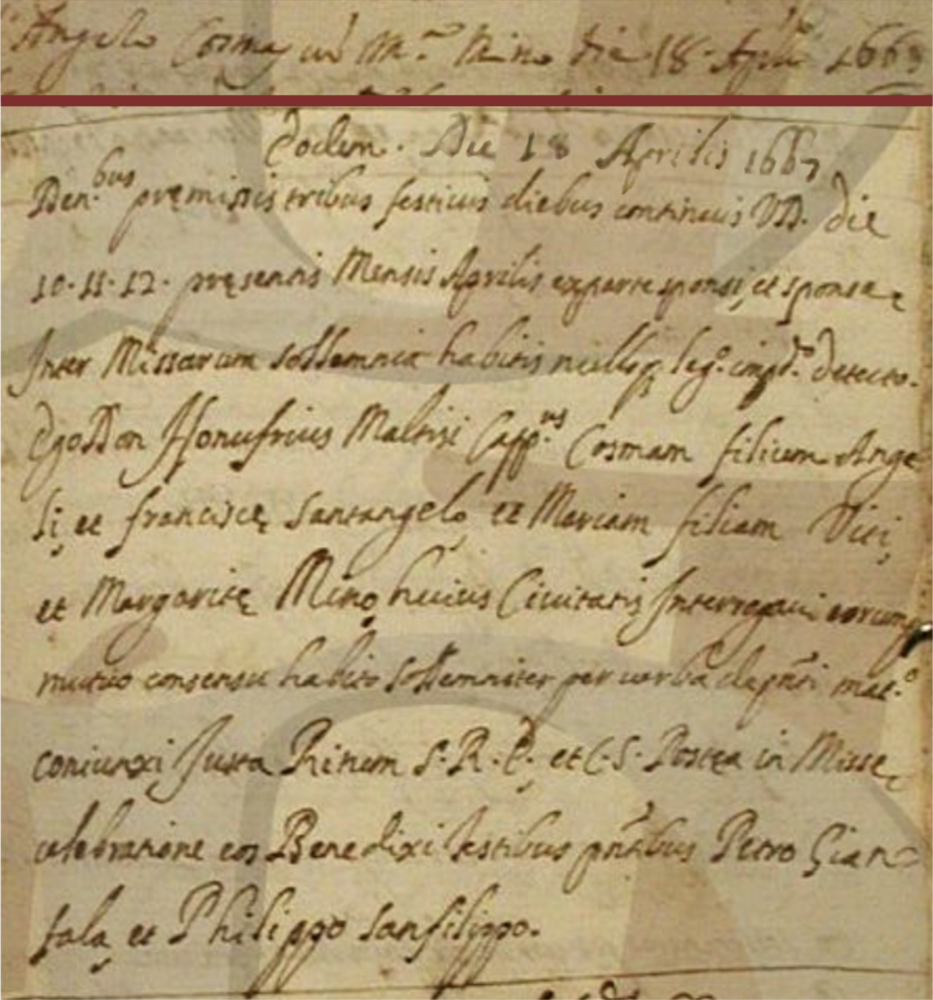 Angelo Cosma cu M.ª Mino die 18 Aprilis 1663
Eodem. Die 18 Aprilis 1667
Den.bus premissis tribus festiuis diebus continuis VD. die
10. 11. 12. pręsentis Mensis Aprilis ex parte sponsi, et sponsae
Inter Missarum sollemnia habitis nulloq leg.º imp.tº detecto.
Ego Don Honufrius Maltisi Capp.nus Cosmam filium Ange
li, et franciscę Santangelo et Mariam filiam Viti,
et Margaritę Mino huius Ciuitatis Interrogaui eorumq
mutuo consensu habito sollemniter per uerba de pnti mat.º
coniunxi Juxta Ritum S. R. E. et C. S. Postea in Misse
celebratione eos Benedixi testibus pntibus Petro Gian
tala et Philippo Sanfilippo.